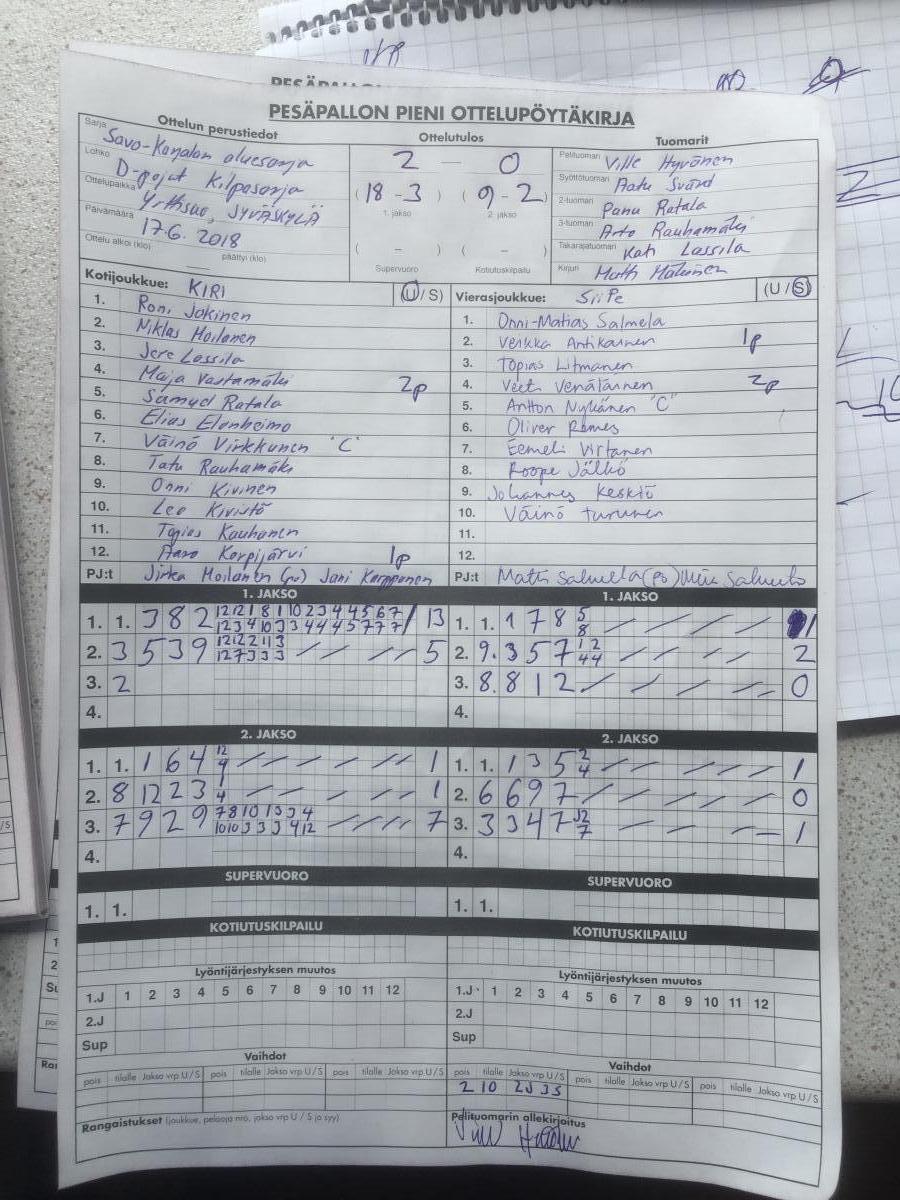 PESÄPALLON PIENI OTTELUPÖYTÄKIRJA
Ottelun perustiedot
Sarja Savo-Karjalan aluesarja
Lohko D-pojat Kilpasarja
Ottelupaikka JYVÄSKYLÄ
Päivämäärä 17.6. 2018
Ottelu alkoi (klo) päättyi (klo)
Ottelutulos
2 — 0
(18 - 3) (9 - 2)
1. jakso 2. jakso
( - ) ( - )
Supervuoro Kotiutuskilpailu
Tuomarit
Pelituomari Ville Hyvönen
Syöttötuomari Aatu Svärd
2-tuomari Panu Ratala
3-tuomari Arto Rauhamäki
Takarajatuomari Kati Lassila
Kirjuri
Kotijoukkue: KIRI (U/S)
1. Roni Jokinen
2. Niklas Moilanen
3. Jere Lassila
4. Maija Vastamäki 2p
5. Samuel Ratala
6. Elias Elonheimo
7. Väinö Virkkunen "C"
8. Tatu Rauhamäki
9. Onni Kivinen
10. Leo Kivistö
11. Topias Kauhanen
12. Aaro Korpijärvi 1p
PJ:t Jirka Moilanen (po) Jani Karppanen
Vierasjoukkue: SiiPe (U/S)
1. Onni-Matias Salmela
2. Veikka Antikainen 1p
3. Topias Litmanen
4. Veeti Venäläinen 2p
5. Antton Nykänen "C"
6. Oliver Remes
7. Eemeli Virtanen
8. Roope Jälkö
9. Johannes Keskiö
10. Väinö Turunen
11.
12.
PJ:t Matti Salmela (po)
1. JAKSO
1. 1. 3 8 2 13
2. 3 5 3 9 5
3. 2
4.
1. JAKSO
1. 1. 1 7 8 5 8 1
2. 9. 3 5 7 1 2 4 4 2
3. 8. 8 1 2 0
4.
2. JAKSO
1. 1. 1 6 4 12 9 1
2. 8 12 2 3 1 4 1
3. 7 9 2 9 7
4.
2. JAKSO
1. 1. 1 3 5 2 4 1
2. 6 6 9 7 0
3. 3 3 4 7 1
4.
SUPERVUORO
1. 1.
SUPERVUORO
1. 1.
KOTIUTUSKILPAILU
KOTIUTUSKILPAILU
Lyöntijärjestyksen muutos
1.J 1 2 3 4 5 6 7 8 9 10 11 12
2.J
Sup
Lyöntijärjestyksen muutos
1.J 1 2 3 4 5 6 7 8 9 10 11 12
2.J
Sup
Vaihdot
pois tilalle Jakso vrp U/S pois tilalle Jakso vrp U/S pois tilalle Jakso vrp U/S
Vaihdot
pois tilalle Jakso vrp U/S pois tilalle Jakso vrp U/S pois tilalle Jakso vrp U/S
2 10 2J 3S
Rangaistukset (joukkue, pelaaja nro, jakso vrp U / S ja syy)
Pelituomarin allekirjoitus